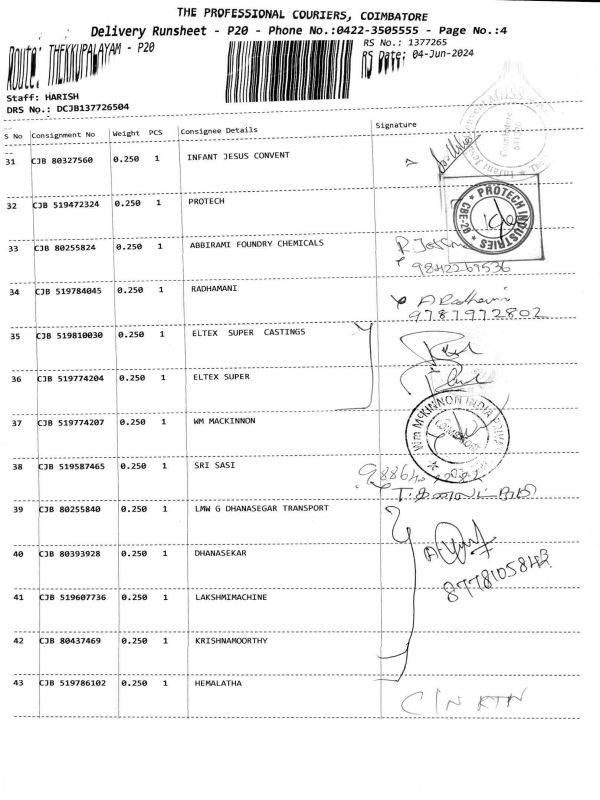 THE PROFESSIONAL COURIERS, COIMBATORE
Delivery Runsheet - P20 - Phone No.:0422-3505555 - Page No.:4
Route: THEKKUPALAYAM - P20
RS No.: 1377265
RS Date: 04-Jun-2024
Staff: HARISH
DRS No.: DCJB137726504
S No Consignment No Weight PCS Consignee Details Signature
31 CJB 80327560 0.250 1 INFANT JESUS CONVENT
32 CJB 519472324 0.250 1 PROTECH
PROTECH INDUSTRIES
33 CJB 80255824 0.250 1 ABBIRAMI FOUNDRY CHEMICALS
9842269536
34 CJB 519784045 0.250 1 RADHAMANI
9787972802
35 CJB 519810030 0.250 1 ELTEX SUPER CASTINGS
36 CJB 519774204 0.250 1 ELTEX SUPER
37 CJB 519774207 0.250 1 WM MACKINNON
38 CJB 519587465 0.250 1 SRI SASI
39 CJB 80255840 0.250 1 LMW G DHANASEGAR TRANSPORT
40 CJB 80393928 0.250 1 DHANASEKAR
41 CJB 519607736 0.250 1 LAKSHMIMACHINE
42 CJB 80437469 0.250 1 KRISHNAMOORTHY
43 CJB 519786102 0.250 1 HEMALATHA
C/N RTN